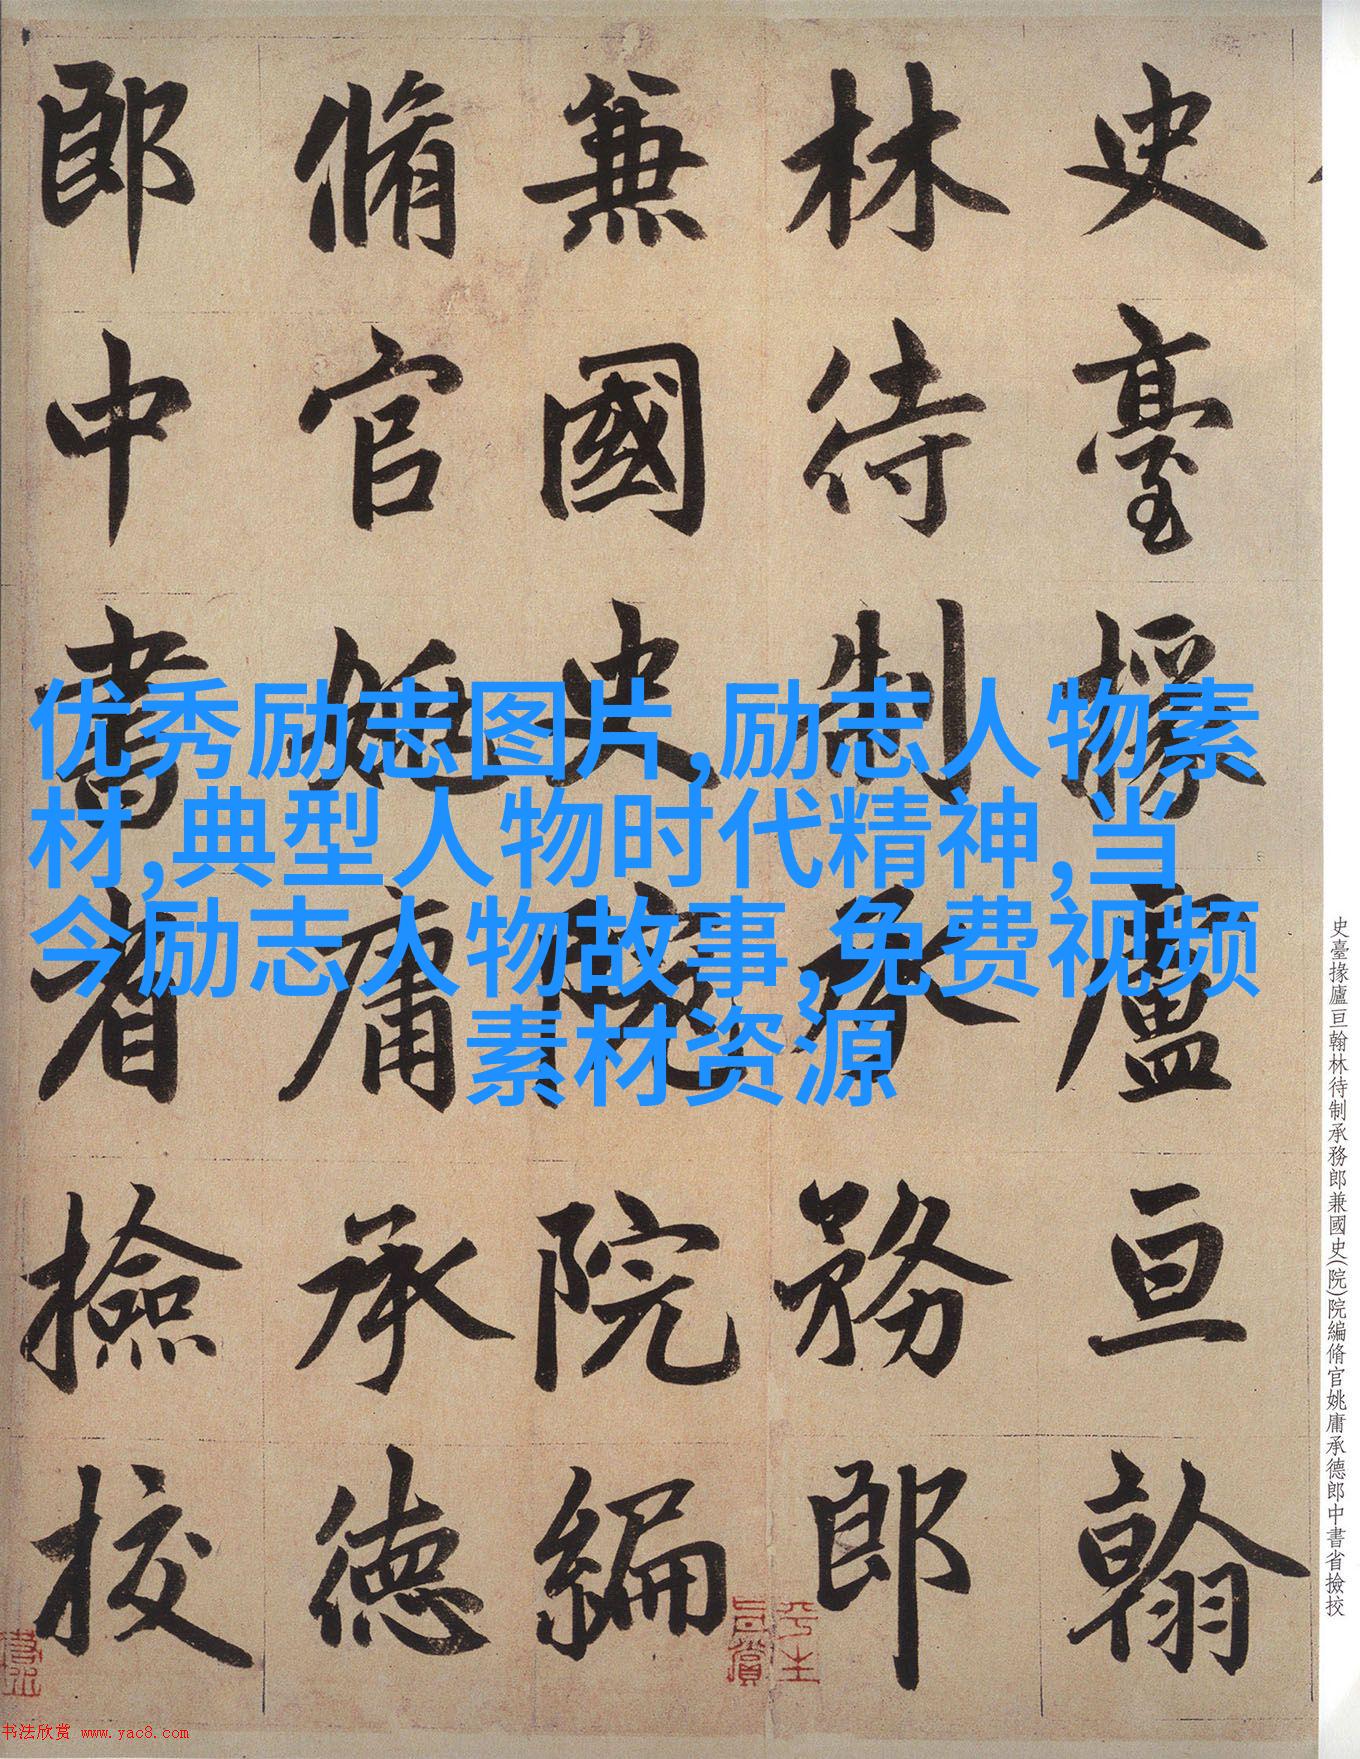 史臺掾廬亘翰
林待制承務郎
兼國史院院編
脩官姚庸承德
郎中書省撿挍
优秀励志图片,励志人物素
材,典型人物时代精神,当
今励志人物故事,免费视频
素材资源
史臺掾廬亘翰林待制承務郎兼國史(院)院編脩官姚庸承德郎中書省撿挍
平生
真賞
书法欣赏 www.yac8.com